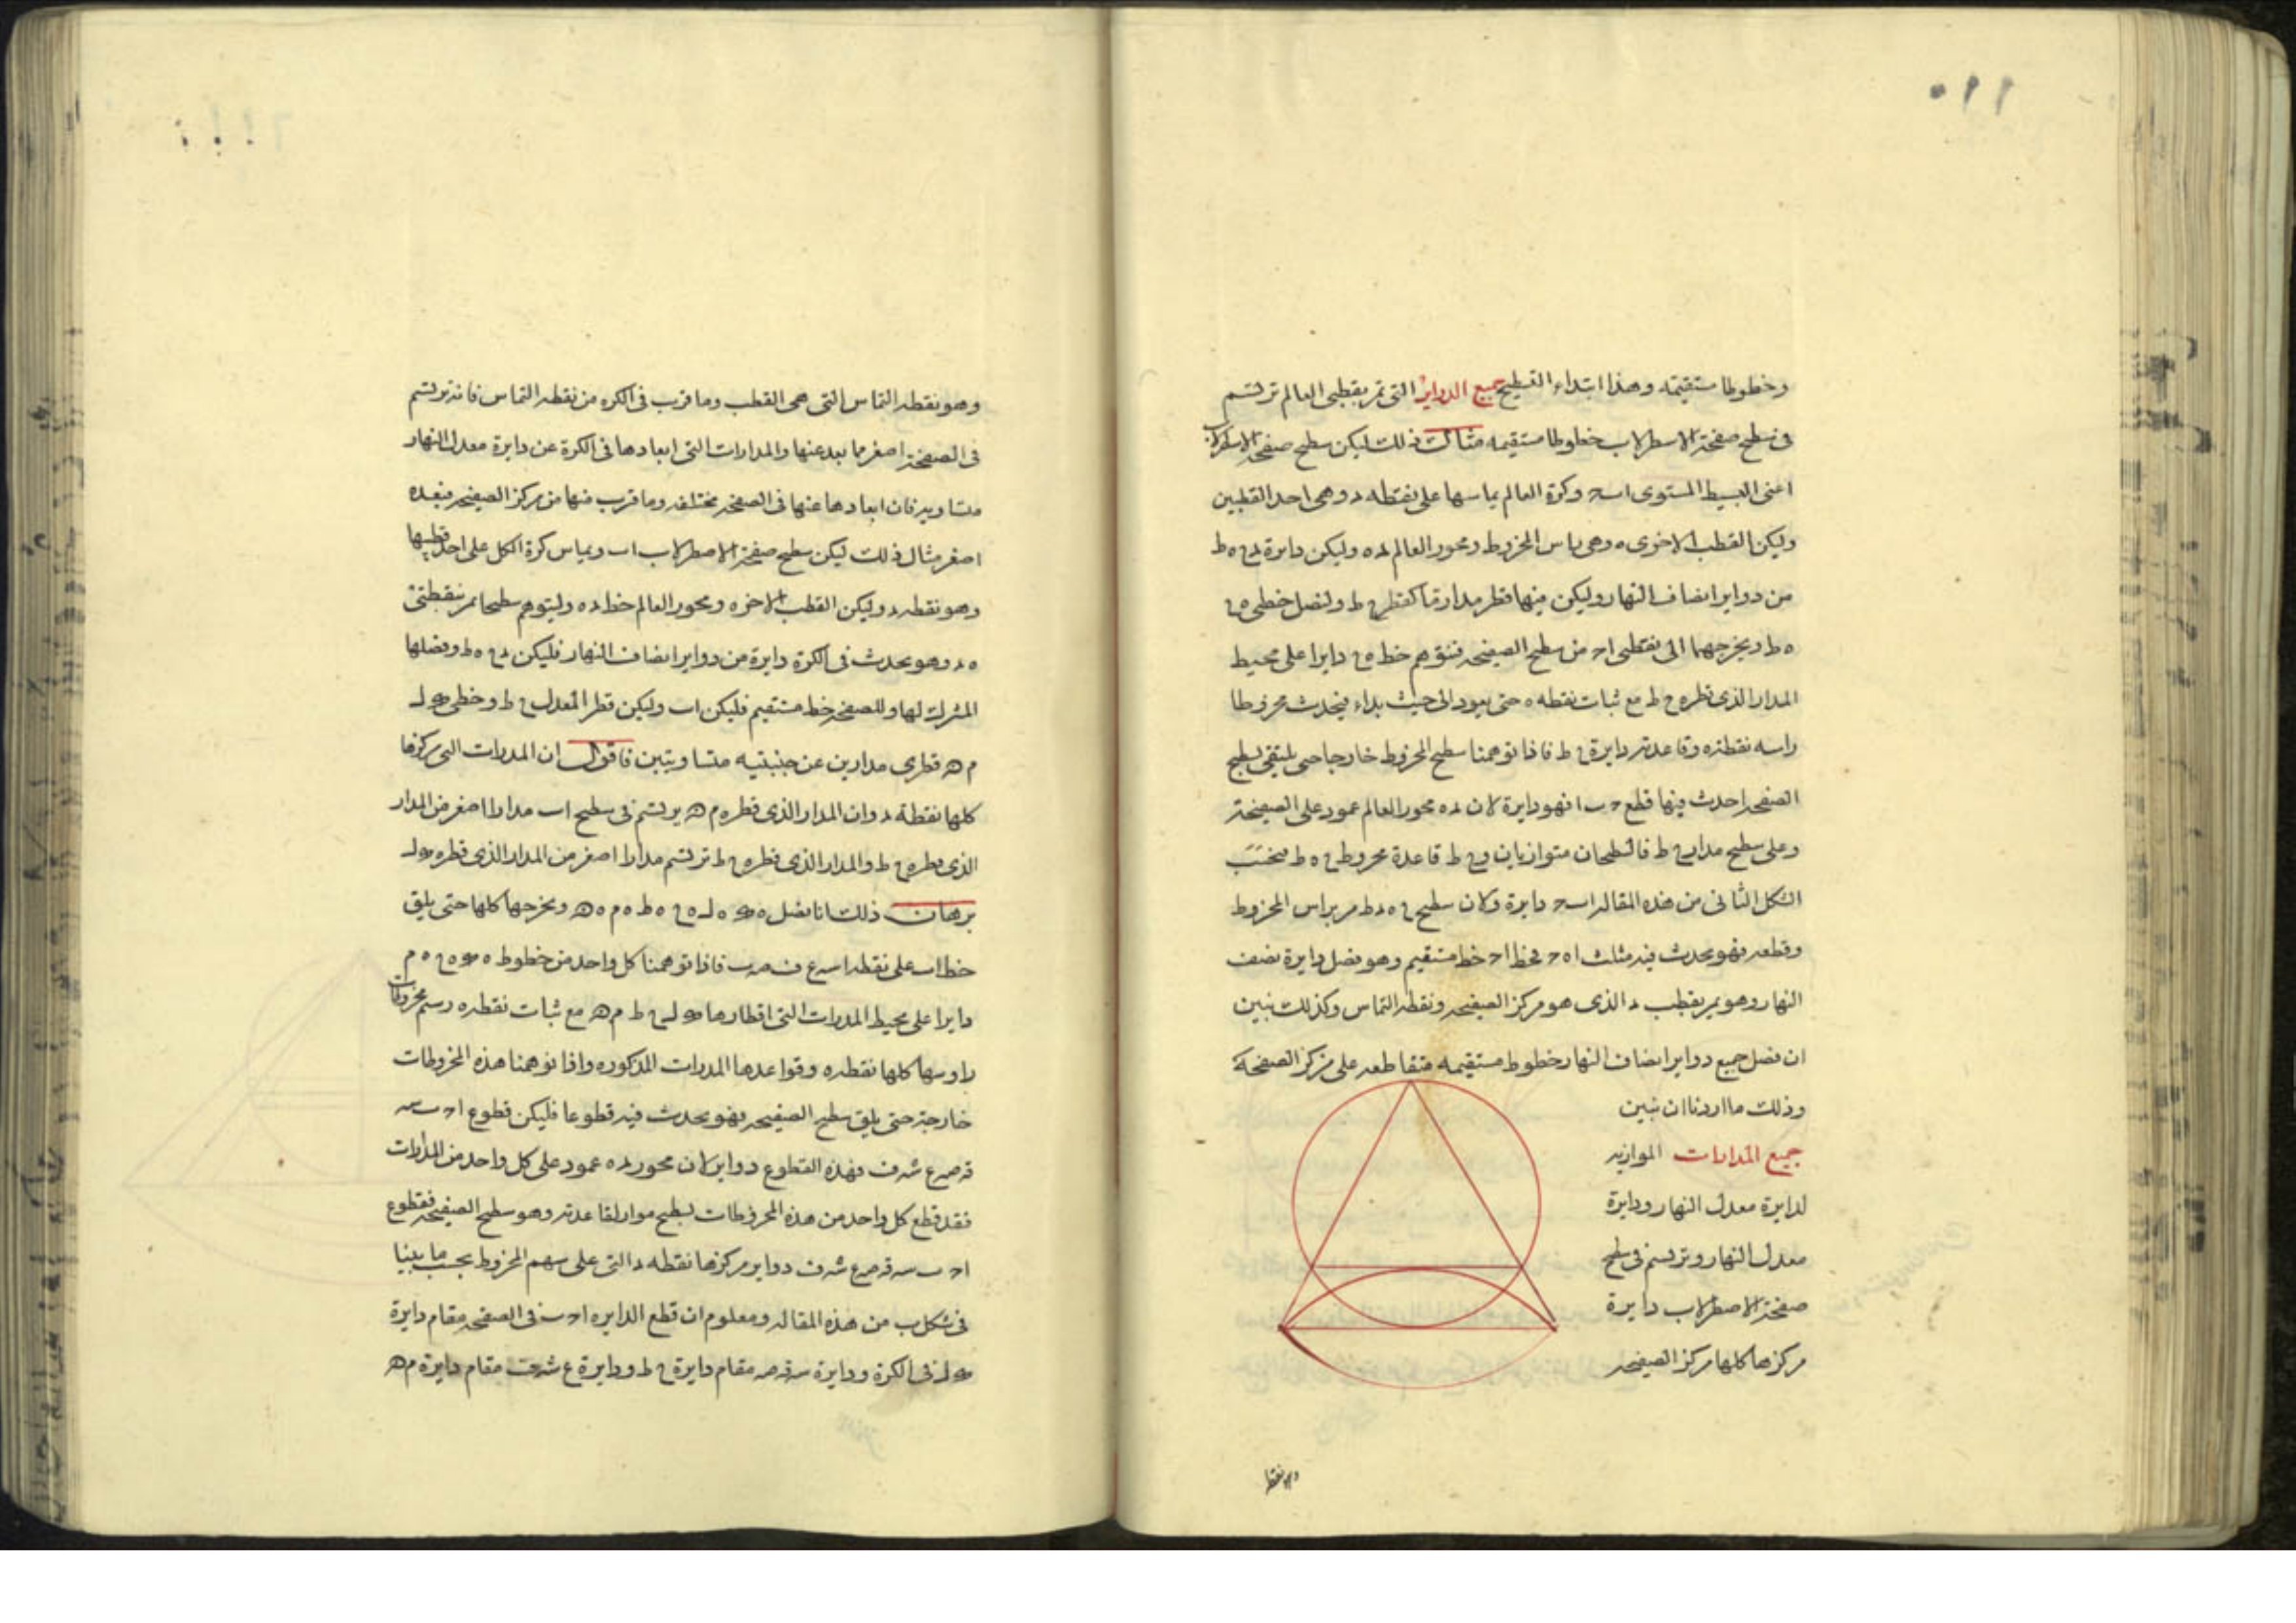 ١١٠
وخطوطا مستقيمه وهذا ابتداء التسطيح جميع الدواير التى تمر بقطبى العالم ترتسم
فى سطح صفحة الاسطرلاب خطوطا مستقيمه مثال ذلك ليكن سطح صفحة الاسطرلاب
اعنى البسيط المستوى ا ب ح وكرة العالم يماسها على نقطه د وهى احد القطبين
وليكن القطب الاخرى ه وهى راس المخروط ومحور العالم د ه وليكن دايرة د ح ه ط
من دواير انصاف النهار وليكن فيها قطر مدار ما كقطر ح ط ولنصل خطى ه ح
ه ط ويخرجهما الى نقطتى ا ح من سطح الصفيحه فنتوهم خط ه ح دايرا على محيط
المدار الذى قطره ح ط مع ثبات نقطه ه حتى يعود الى حيث بداء فيحدث مخروطا
راسه نقطه ه وقاعدته دايرة ح ط فاذا توهمنا سطح المخروط خارجا حتى يلتقى بسطح
الصفحه احدث فيها قطع ح ب ا فهو دايرة لان د ه محور العالم عمود على الصفيحة
وعلى سطح مدار ح ط فالسطحان متوازيان و ح ط قاعدة مخروط ح ه ط فبحسب
الشكل الثانى من هذه المقاله ا ب ح دايرة ولان سطح ح ه د ط مر براس المخروط
وقطعه فهو يحدث فيه مثلث ا ه ح فخط ا ح خط مستقيم وهو فصل دايرة نصف
النهار وهو يمر بقطب د الذى هو مركز الصفيحه ونقطه التماس وكذلك نبين
ان فصل جميع دواير انصاف النهار خطوط مستقيمه متقاطعه على مركز الصفحة
وذلك ما اردنا ان نبين
جميع المدارات الموازيه
لدايرة معدل النهار ودايرة
معدل النهار وترتسم فى سطح
صفحة الاصطرلاب دايرة
مركزها كلها مركز الصفيحه
وهو نقطه
وهو نقطه التماس التى هى القطب وما قرب فى الكره من نقطه التماس فانه يرتسم
فى الصفيحة اصغر مما بعد عنها والمدارات التى ابعادها فى الكرة عن دايرة معدل النهار
متساويه فان ابعادها عنها فى الصفحه مختلفه وما قرب منها من مركز الصفيحه فبعده
اصغر مثال ذلك ليكن سطح صفيحة الاصطرلاب ا ب ويماس كرة الكل على احد قطبيها
وهو نقطه د وليكن القطب الاخر ه ومحور العالم خط د ه وليتوهم سطحا يمر بنقطتى
ه د وهو يحدث فى الكرة دايرة من دواير انصاف النهار فليكن د ح ه ط وفصلها
المشرك لها وللصفحه خط مستقيم فليكن ا ب وليكن قطر المعدل ح ط وخطى ل
م قطرى مدارين عن جنبتيه متساويتين فاقول ان المدرات التى مركزها
كلها نقطة د وان المدار الذى قطره م يرتسم فى سطح ا ب مدارا اصغر من المدار
الذى قطره ح ط والمدار الذى قطره ح ط ترتسم مدارا اصغر من المدار الذى قطره ل
برهان ذلك انا نصل ه ه ل ه ح ه ط ه م ه ونخرجها كلها حتى يلق
خط ا ب على نقطه ا س ع ف ص ب فاذا توهمنا كل واحد من خطوط ه ه ح ه م
دايرا على محيط المدرات التى اقطارها ل ح ط م مع ثبات نقطه ه رسم مخروطات
راوسها كلها نقطه ه وقواعدها المدرات المذكوره واذا توهمنا هذه المخروطات
خارجة حتى يلق سطح الصفيحه فهو يحدث فيه قطوعا فليكن قطوع ا ح ب س
ق ص ع ش ف فهذه القطوع دواير لان محور د ه عمود على كل واحد من المدارات
فقد قطع كل واحد من هذه المخروطات بسطح مواز لقاعدته وهو سطح الصفيحه فقطوع
ا ح ب س ق ص ع ش ف دواير مركزها نقطه د التى على سهم المخروط بحسب ما بينا
فى شكل ب من هذه المقاله ومعلوم ان قطع الدايره ا ح ب فى الصفحه مقام دايرة
ل فى الكرة ودايرة س ق ص مقام دايرة ح ط ودايرة ع ش ف مقام دايرة م